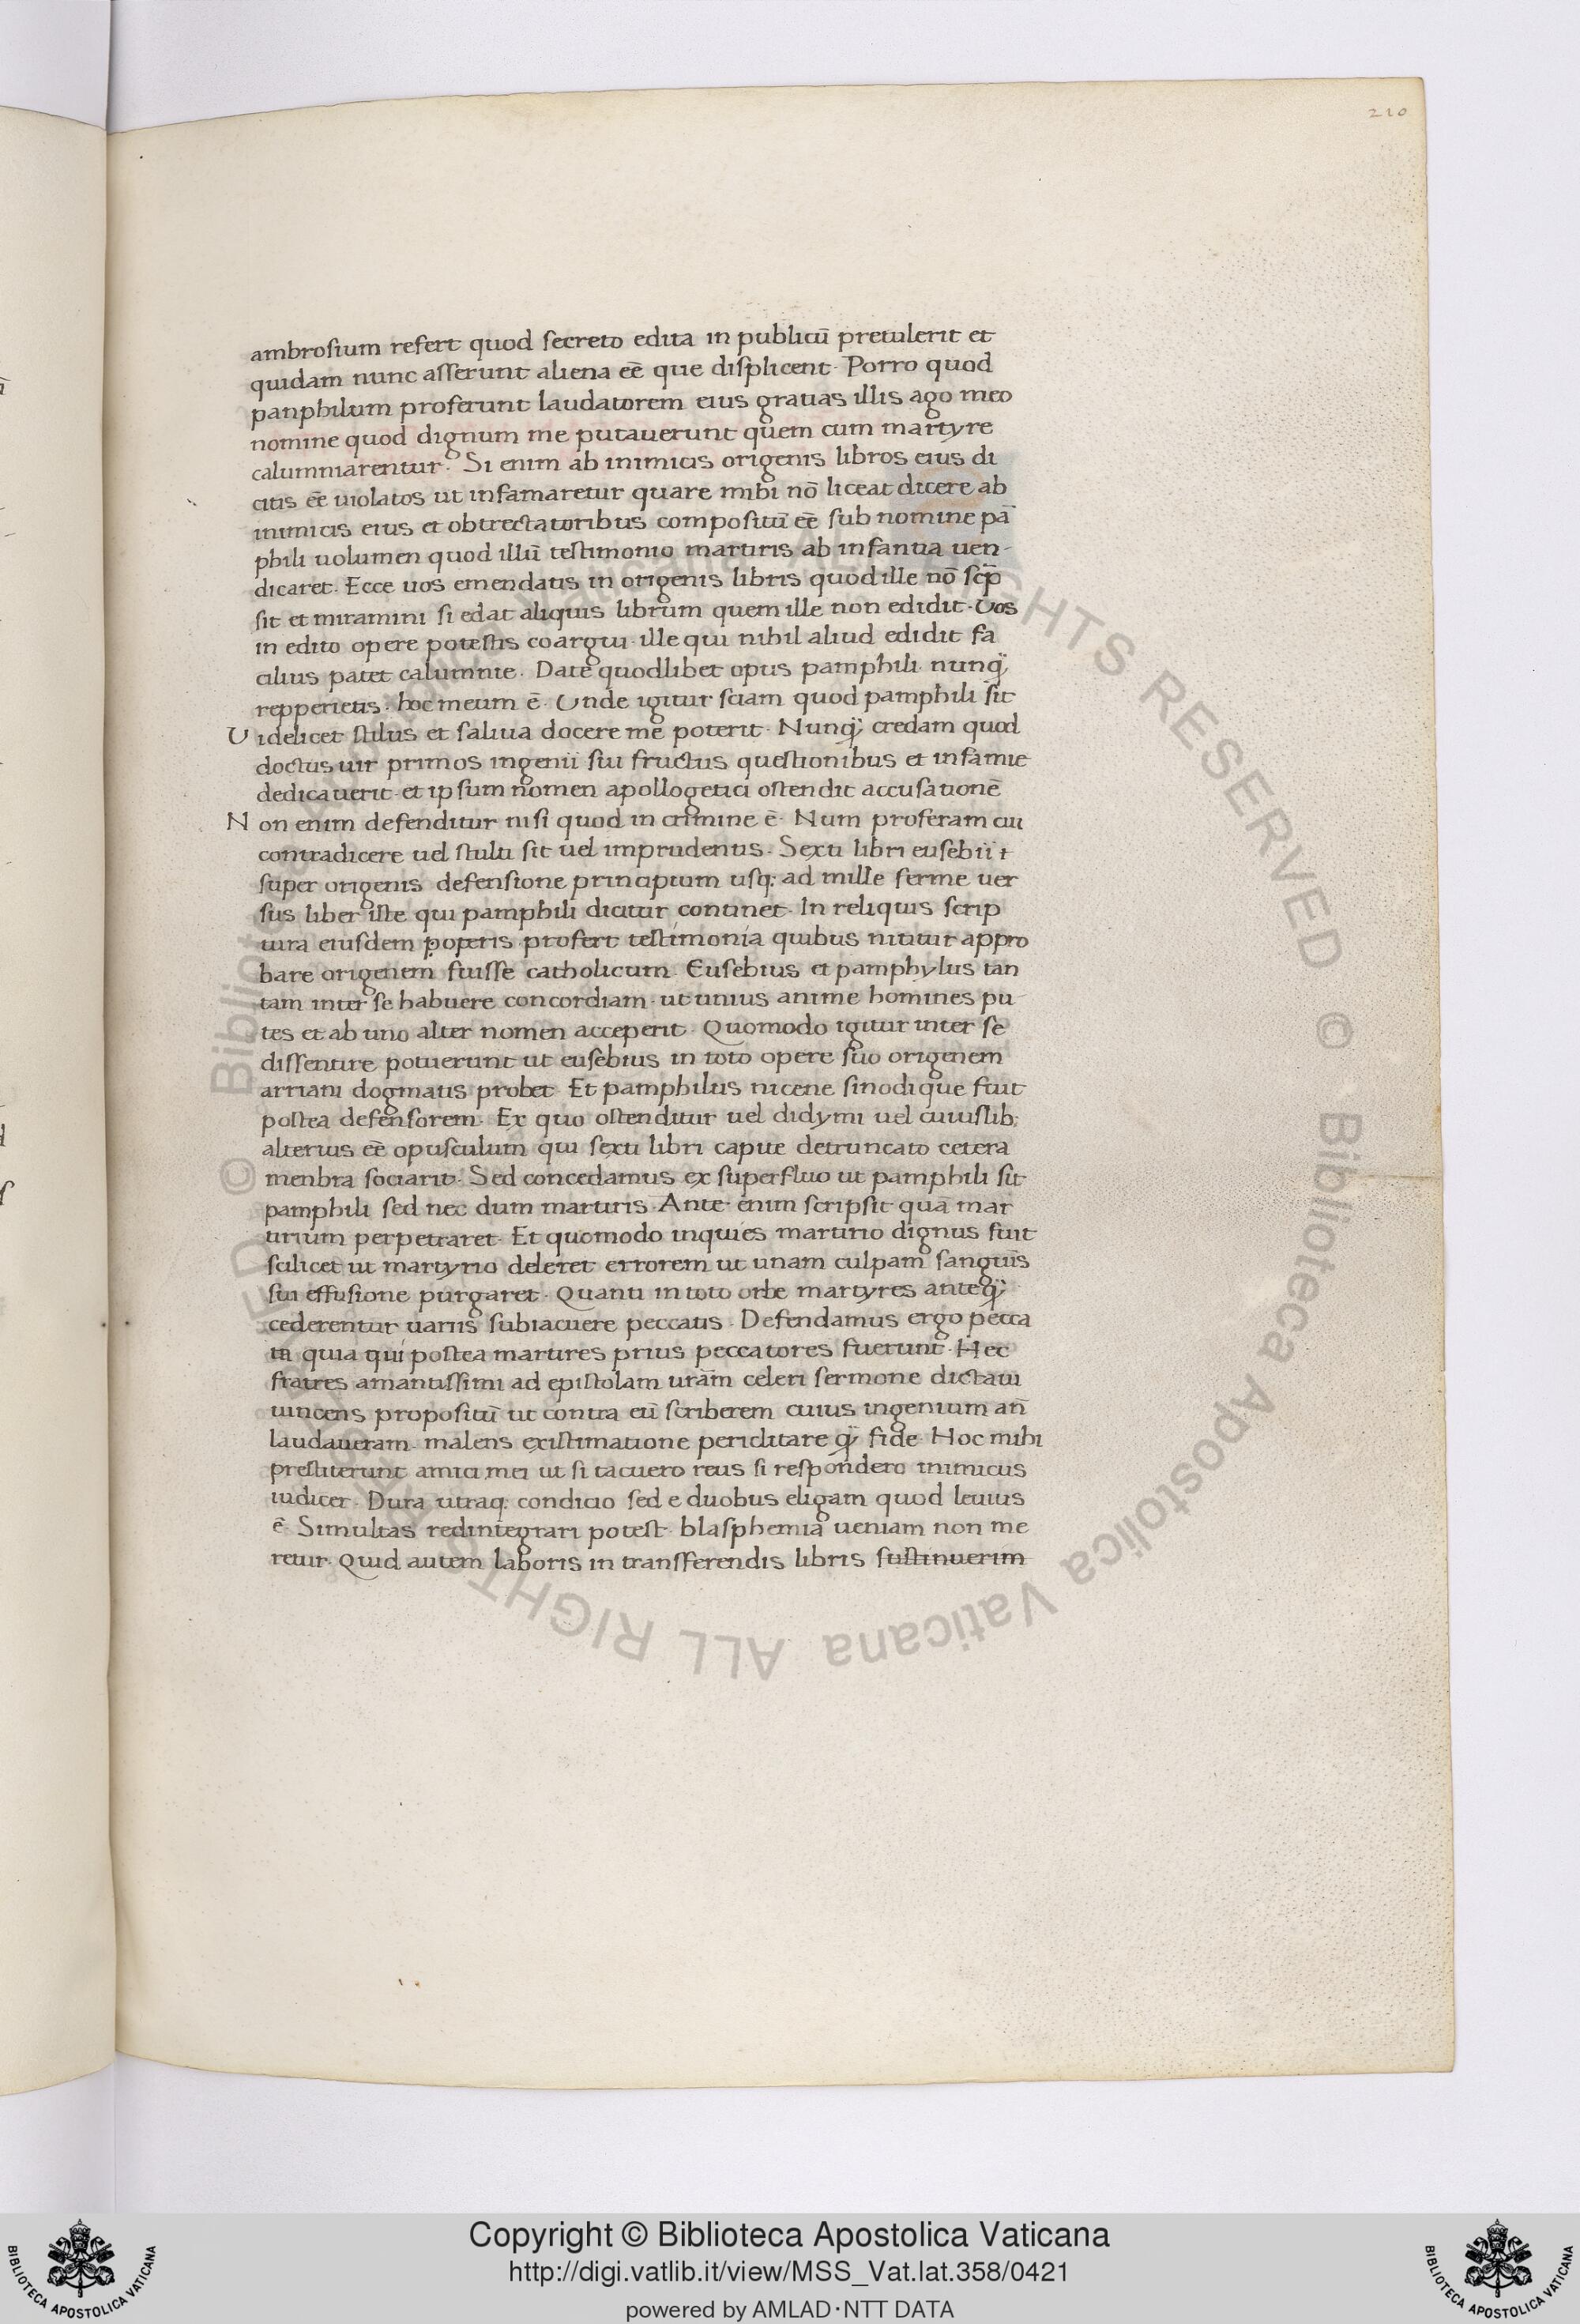 210
ambrosium refert quod secreto edita in publicū pretulerit et
quidam nunc asserunt aliena eē que displicent. Porro quod
panphilum proferunt laudatorem eius gratias illis ago meo
nomine quod dignum me putauerunt quem cum martyre
calumniarentur. Si enim ab inimicis origenis libros eius di
citis eē uiolatos ut infamaretur quare mihi nō liceat dicere ab
inimicis eius et obtrectatoribus compositū eē sub nomine pā
phili uolumen quod illū testimonio martiris ab infantia uen-
dicaret. Ecce uos emendatis in origenis libris quod ille nō scp̄
sit et miramini si edat aliquis librum quem ille non edidit. Vos
in edito opere potestis coargui. ille qui nihil aliud edidit fa
cilius patet calumnie. Date quodlibet opus pamphili. nunq̃
repperietis. hoc meum ē. Unde igitur sciam quod pamphili sit
Videlicet stilus et saliua docere me poterit. Nunq̃ credam quod
doctus uir primos ingenii sui fructus questionibus et infamie
dedicauerit. et ipsum nomen apollogetici ostendit accusationē
Non enim defenditur nisi quod in crimine ē. Num proferam cui
contradicere uel stulti sit uel imprudentis. Sexti libri eusebii
super origenis defensione principium usq; ad mille ferme uer
sus liber iste qui pamphili dicitur continet. In reliquis scrip
tura eiusdem poperis profert testimonia quibus nititur appro
bare origenem fuisse catholicum. Eusebius et pamphylus tan
tam inter se habuere concordiam. ut unius anime homines pu
tes et ab uno alter nomen acceperit. Quomodo igitur inter se
dissentire potuerunt ut eusebius in toto opere suo origenem
arriani dogmatis probet. Et pamphilus nicene sinodi que fuit
postea defensorem. Ex quo ostenditur uel didymi uel cuiuslib;
alterius eē opusculum qui sexti libri capite detruncato cetera
menbra sociarit. Sed concedamus ex superfluo ut pamphili sit
pamphili sed nec dum martiris. Ante enim scripsit quā mar
tirium perpetraret. Et quomodo inquies martirio dignus fuit
scilicet ut martyrio deleret errorem ut unam culpam sanguīs
sui effusione purgaret. Quanti in toto orbe martyres anteq̃
cederentur uariis subiacuere peccatis. Defendamus ergo pecca
ta quia qui postea martires prius peccatores fuerunt. Hec
fratres amantissimi ad epistolam urām celeri sermone dictaui
uincens propositū ut contra eū scriberem cuius ingenium an̄
laudaueram. malens existimatione periclitare q̃ fide. Hoc mihi
prestiterunt amici mei ut si tacuero reus si respondero inimicus
iudicer. Dura utraq; condicio sed e duobus eligam quod leuius
ē. Simultas redintegrari potest. blasphemia ueniam non me
retur. Quid autem laboris in transferendis libris sustinuerim
© Biblioteca Apostolica Vaticana ALL RIGHTS RESERVED © Biblioteca Apostolica Vaticana ALL RIGHTS RESERVED
BIBLIOTECA APOSTOLICA VATICANA
Copyright © Biblioteca Apostolica Vaticana
http://digi.vatlib.it/view/MSS_Vat.lat.358/0421
powered by AMLAD·NTT DATA
BIBLIOTECA APOSTOLICA VATICANA